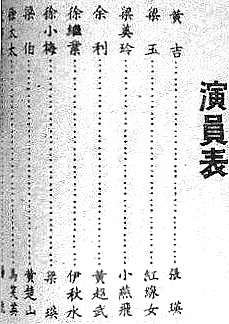 演員表
黃吉⋯⋯⋯⋯張瑛
梁玉⋯⋯⋯⋯紅線女
梁美玲⋯⋯⋯⋯小燕飛
余利⋯⋯⋯⋯黃超武
徐繼業⋯⋯⋯⋯伊秋水
徐小梅⋯⋯⋯⋯梁瑛
梁伯⋯⋯⋯⋯黃楚山
太太⋯⋯⋯⋯馬笑英